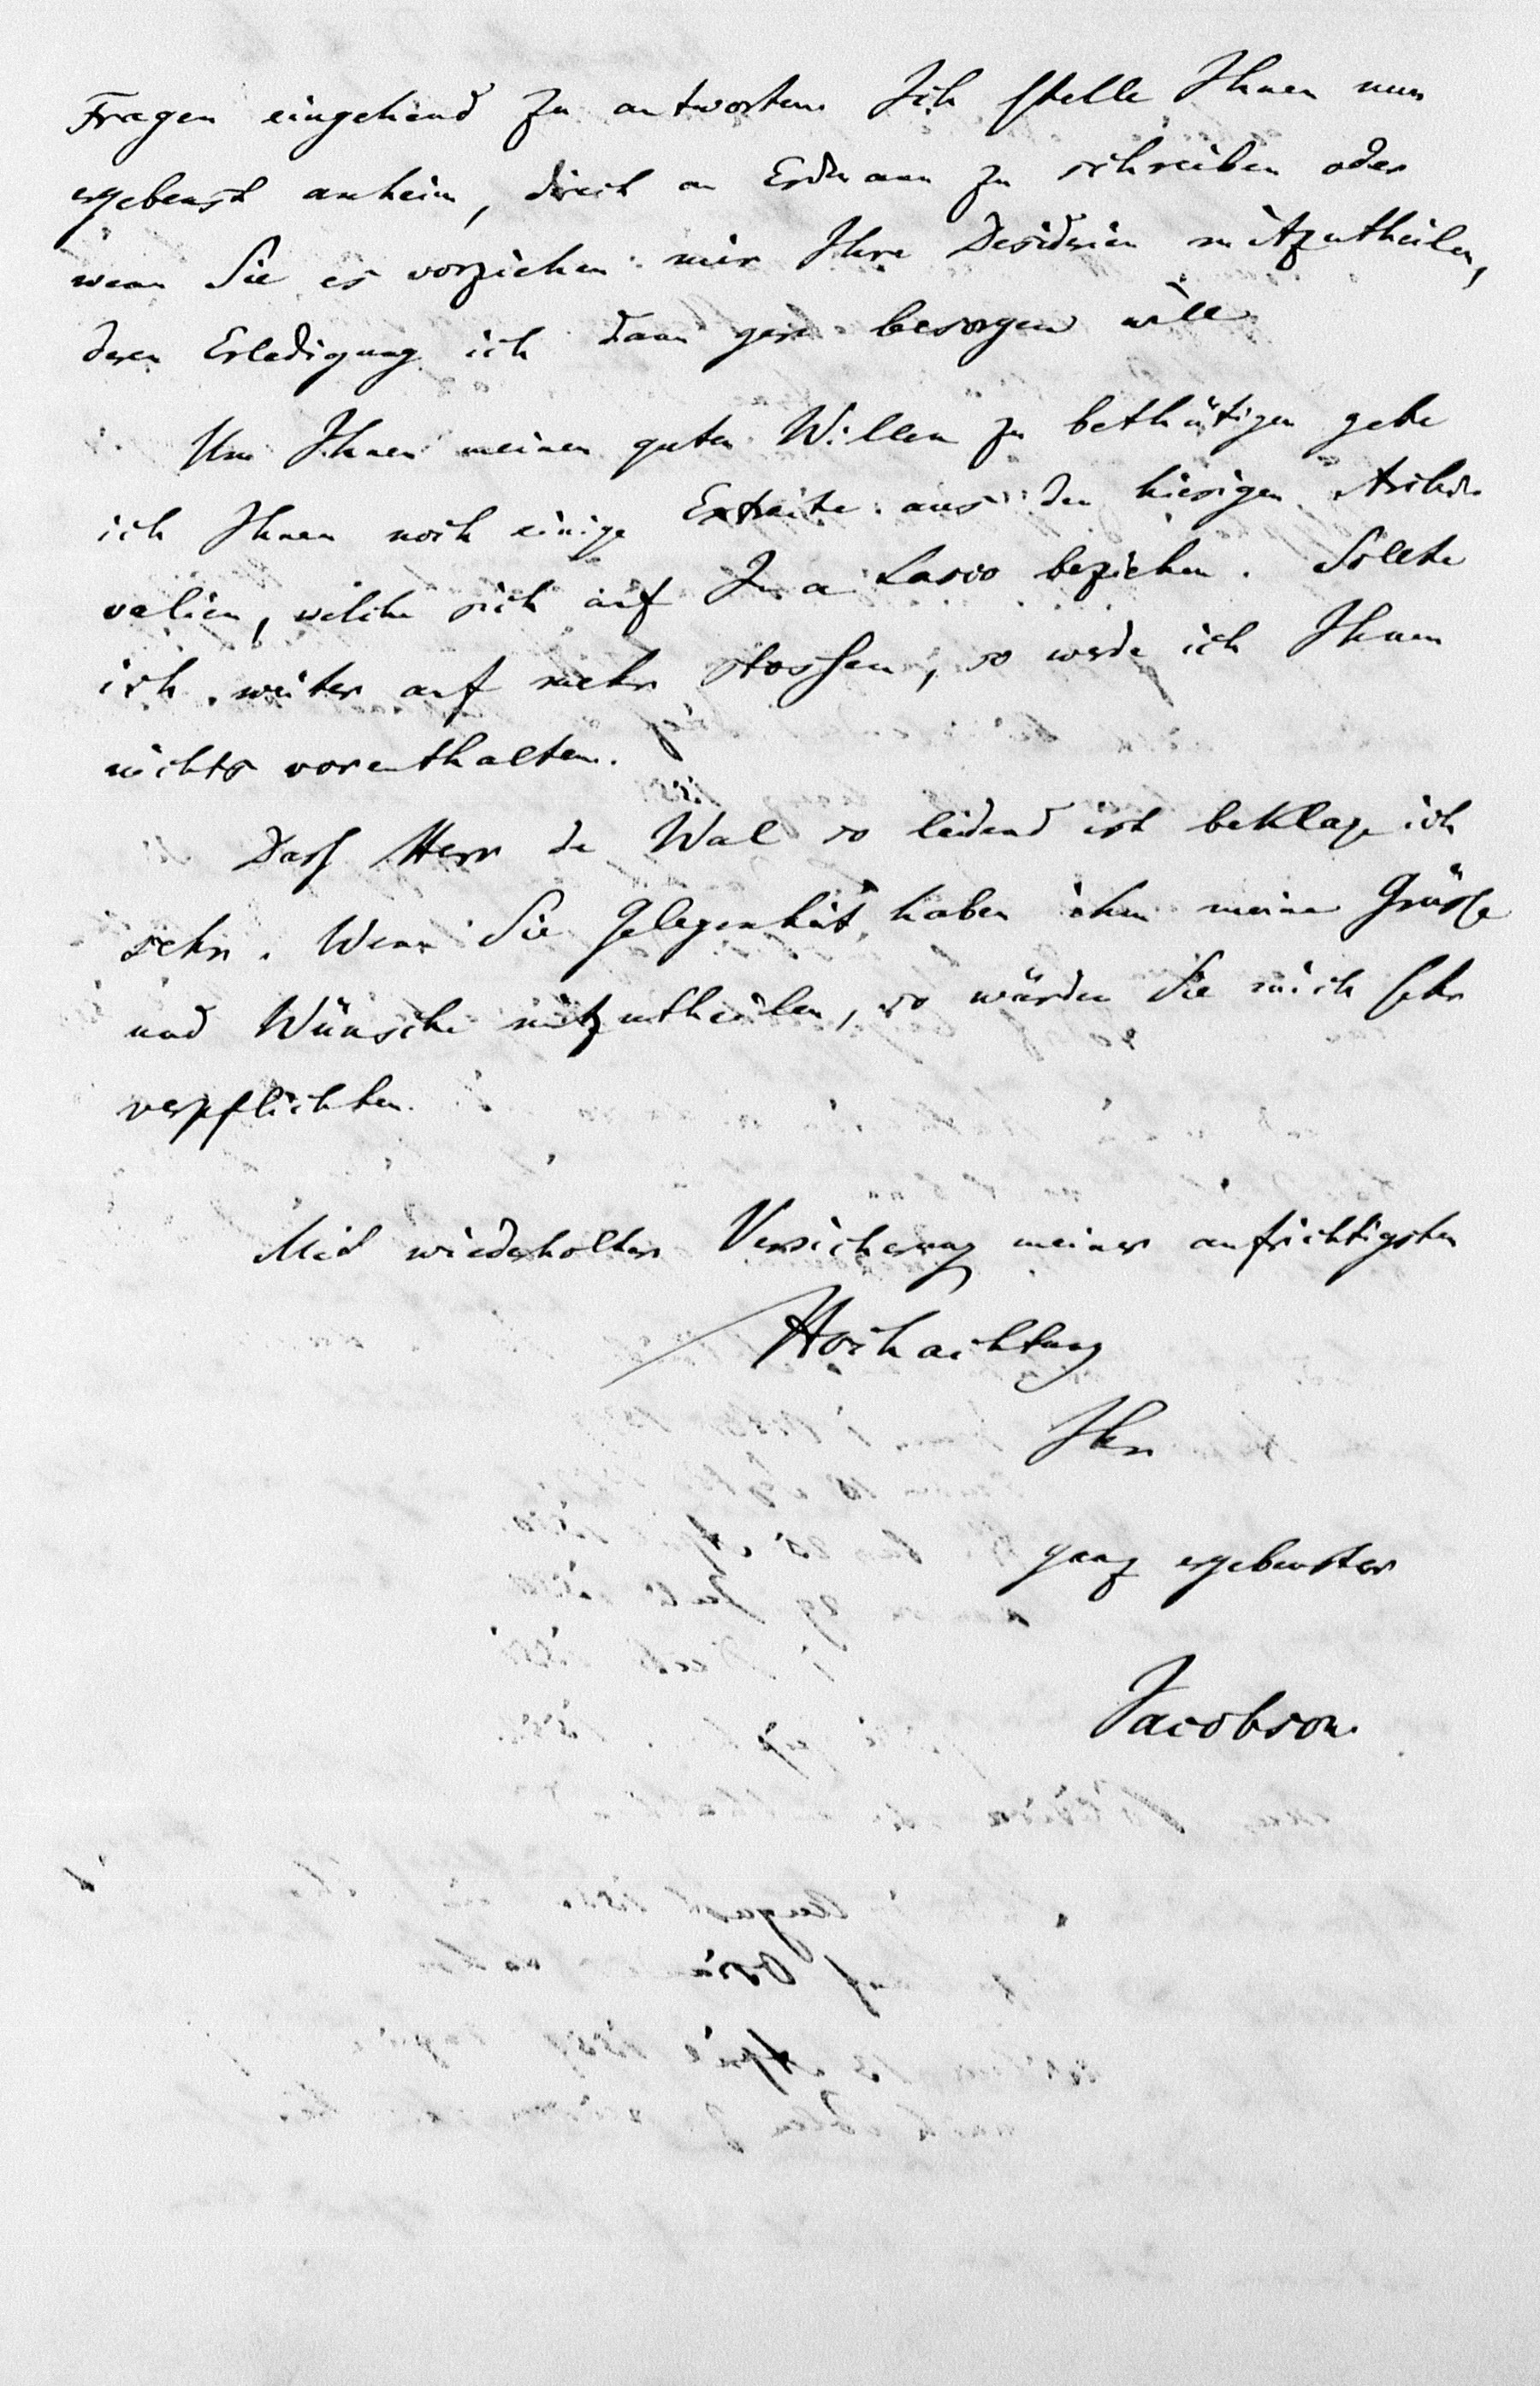 Fragen eingehend zu antworten. Ich stelle Ihnen nun
ergebenst anheim, direct an Erdmann zu schreiben oder
wenn Sie es vorziehen mir Ihre Desiderien mitzutheilen,
deren Erledigung ich dann gern besorgen will.
Um Ihnen meinen guten Willen zu bethätigen gebe
ich Ihnen noch einige Extracte aus den hiesigen Archi-
valien, welche sich auf J. a Lasco beziehen. Sollte
ich weiter auf mehr stossen, so werde ich Ihnen
nichts vorenthalten.
Dass Herr de Wal so leidend ist beklage ich
sehr. Wenn Sie Gelegenheit haben ihm meine Grüsse
und Wünsche mitzutheilen, so würden Sie mich sehr
verpflichten.
Mit wiederholter Versicherung meiner aufrichtigsten
Hochachtung
Ihr
ganz ergebenster
Jacobson.